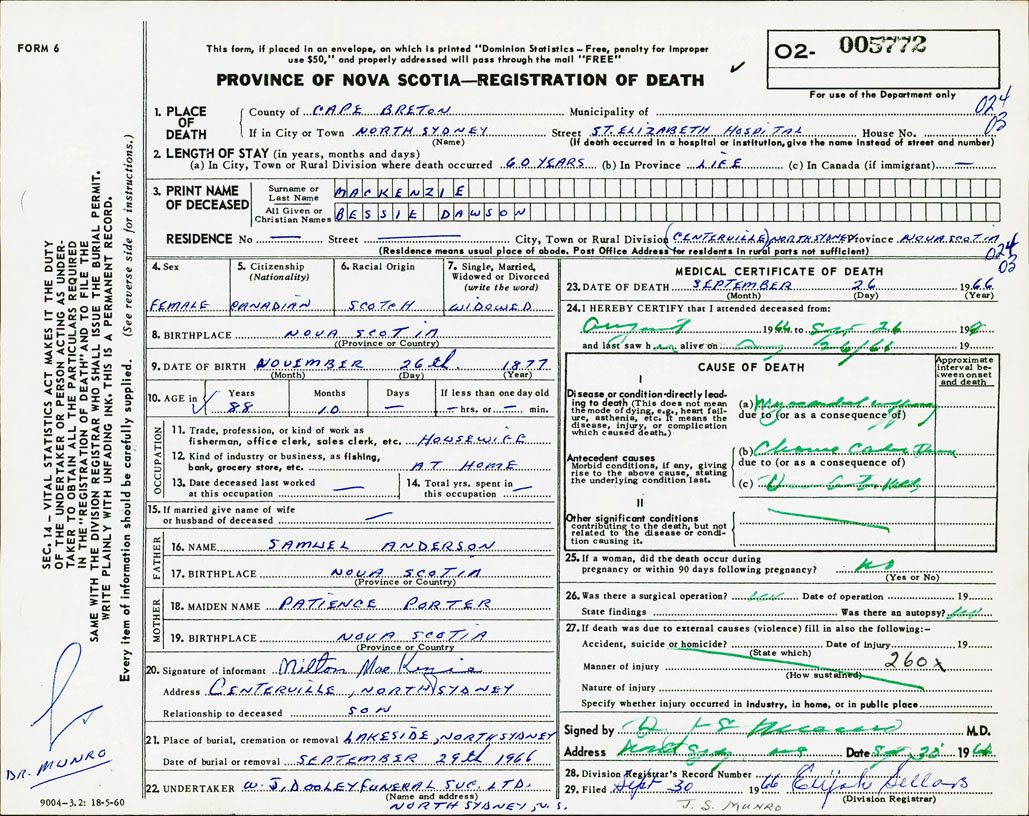 FORM 6
This form, if placed in an envelope, on which is printed "Dominion Statistics – Free, penalty for improper
use $50," and properly addressed will pass through the mail "FREE"
PROVINCE OF NOVA SCOTIA—REGISTRATION OF DEATH
02- 005772
For use of the Department only
024
03
1. PLACE OF DEATH
County of CAPE BRETON Municipality of
If in City or Town NORTH SYDNEY Street ST. ELIZABETH HOSPITAL House No.
(Name) (If death occurred in a hospital or institution, give the name instead of street and number)
2. LENGTH OF STAY (in years, months and days)
(a) In City, Town or Rural Division where death occurred 60 YEARS (b) In Province LIFE (c) In Canada (if immigrant) —
3. PRINT NAME OF DECEASED
Surname or Last Name MACKENZIE
All Given or Christian Names BESSIE DAWSON
RESIDENCE No — Street — City, Town or Rural Division (CENTERVILLE) NORTH SYDNEY Province NOVA SCOTIA
(Residence means usual place of abode. Post Office Address for residents in rural parts not sufficient)
024
03
4. Sex FEMALE
5. Citizenship (Nationality) CANADIAN
6. Racial Origin SCOTCH
7. Single, Married, Widowed or Divorced (write the word) WIDOWED
8. BIRTHPLACE NOVA SCOTIA
(Province or Country)
9. DATE OF BIRTH NOVEMBER 26th 1877
(Month) (Day) (Year)
10. AGE in Years Months Days If less than one day old
88 10 — — hrs. or — min.
OCCUPATION
11. Trade, profession, or kind of work as
fisherman, office clerk, sales clerk, etc. HOUSEWIFE
12. Kind of industry or business, as fishing,
bank, grocery store, etc. AT HOME
13. Date deceased last worked
at this occupation —
14. Total yrs. spent in
this occupation —
15. If married give name of wife
or husband of deceased —
FATHER
16. NAME SAMUEL ANDERSON
17. BIRTHPLACE NOVA SCOTIA
(Province or Country)
MOTHER
18. MAIDEN NAME PATIENCE PORTER
19. BIRTHPLACE NOVA SCOTIA
(Province or Country
20. Signature of informant Milton MacKenzie
Address CENTERVILLE, NORTH SYDNEY
Relationship to deceased SON
21. Place of burial, cremation or removal LAKESIDE, NORTH SYDNEY
Date of burial or removal SEPTEMBER 29th 1966
22. UNDERTAKER W. J. DOOLEY FUNERAL SVC. LTD.
(Name and address)
NORTH SYDNEY, N.S.
MEDICAL CERTIFICATE OF DEATH
23. DATE OF DEATH SEPTEMBER 26 1966
(Month) (Day) (Year)
24. I HEREBY CERTIFY that I attended deceased from:
August 1966 to Sept 26 19
and last saw h alive on 19
CAUSE OF DEATH
Approximate interval between onset and death
I
Disease or condition directly leading to death (This does not mean
the mode of dying, e.g., heart failure, asthenia, etc. It means the
disease, injury, or complication
which caused death.)
(a) Myocardial
due to (or as a consequence of)
Antecedent causes
Morbid conditions, if any, giving
rise to the above cause, stating
the underlying condition last.
(b)
due to (or as a consequence of
(c)
II
Other significant conditions
contributing to the death, but not
related to the disease or condition causing it.
25. If a woman, did the death occur during
pregnancy or within 90 days following pregnancy? No
(Yes or No)
26. Was there a surgical operation? Date of operation 19
State findings Was there an autopsy?
27. If death was due to external causes (violence) fill in also the following:–
Accident, suicide or homicide? Date of injury 19
(State which)
260x
Manner of injury
(How sustained)
Nature of injury
Specify whether injury occurred in industry, in home, or in public place
Signed by M.D.
Address Date 19
28. Division Registrar's Record Number
29. Filed Sept 30 1966 Elijah Sellars
(Division Registrar)
J. S. MUNRO
SEC. 14 – VITAL STATISTICS ACT MAKES IT THE DUTY
OF THE UNDERTAKER OR PERSON ACTING AS UNDER-
TAKER TO OBTAIN ALL THE PARTICULARS REQUIRED
IN THE "REGISTRATION OF DEATH" AND TO FILE THE
SAME WITH THE DIVISION REGISTRAR WHO SHALL ISSUE THE BURIAL PERMIT.
WRITE PLAINLY WITH UNFADING INK. THIS IS A PERMANENT RECORD.
Every item of information should be carefully supplied. (See reverse side for instructions.)
DR. MUNRO
9004–3.2: 18-5-60